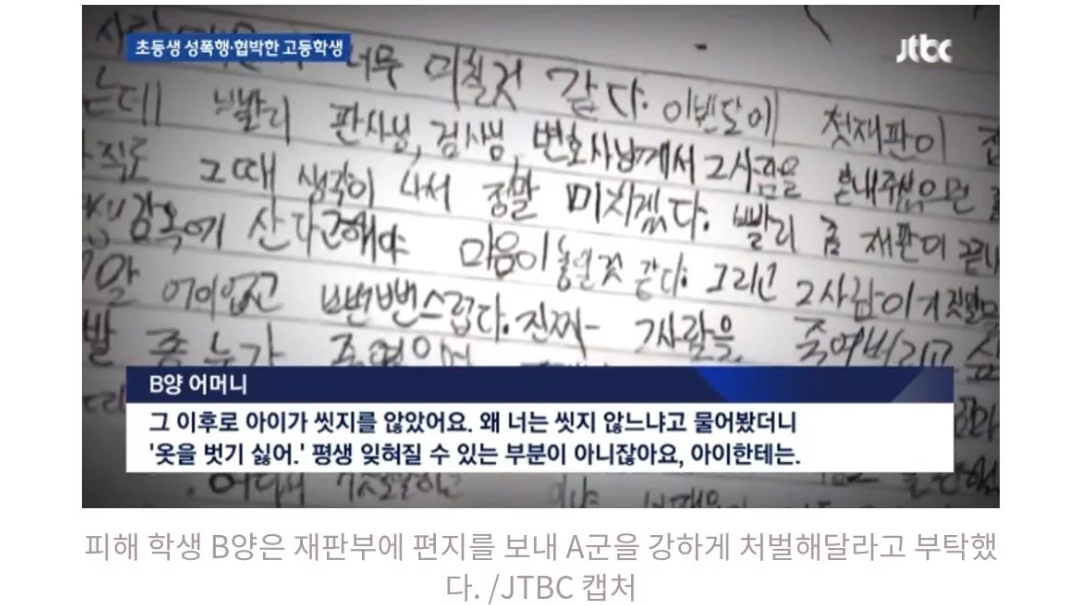 초등생 성폭행·협박한 고등학생
jtbc
너무 미칠것 같다. 이번달에 첫재판이
는데 빨리 판사님, 검사님, 변호사님께서 그사람을 보내주셨으면
그때 생각이 나서 정말 미치겠다. 빨리 좀 재판이 끝나
감옥에 산다고해야 마음이 놓일것 같다. 그리고 그사람이 거짓말을
어이없고 뻔뻔스럽다. 진짜 그사람을 죽여버리고
B양 어머니
그 이후로 아이가 씻지를 않았어요. 왜 너는 씻지 않느냐고 물어봤더니
'옷을 벗기 싫어.' 평생 잊혀질 수 있는 부분이 아니잖아요, 아이한테는.
피해 학생 B양은 재판부에 편지를 보내 A군을 강하게 처벌해달라고 부탁했
다. /JTBC 캡처